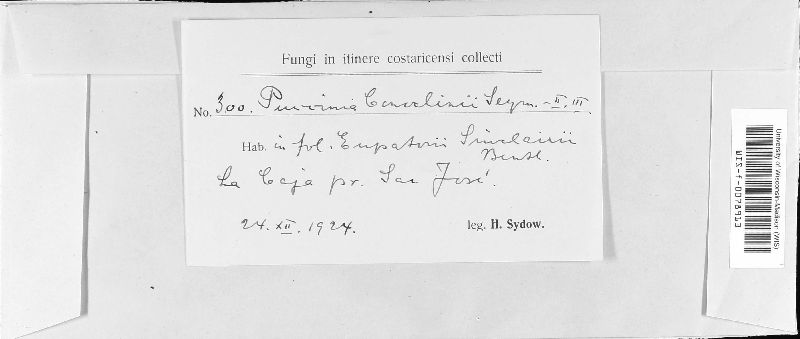 Fungi in itinere costaricensi collecti
No. 300. Puccinia Conoclinii Seym. - II, III.
Hab. in fol. Eupatorii Sinclairii
Benth.
La Caja pr. San José.
24. XII. 1924. leg. H. Sydow.
University of Wisconsin-Madison (WIS)
WIS-f-0078913